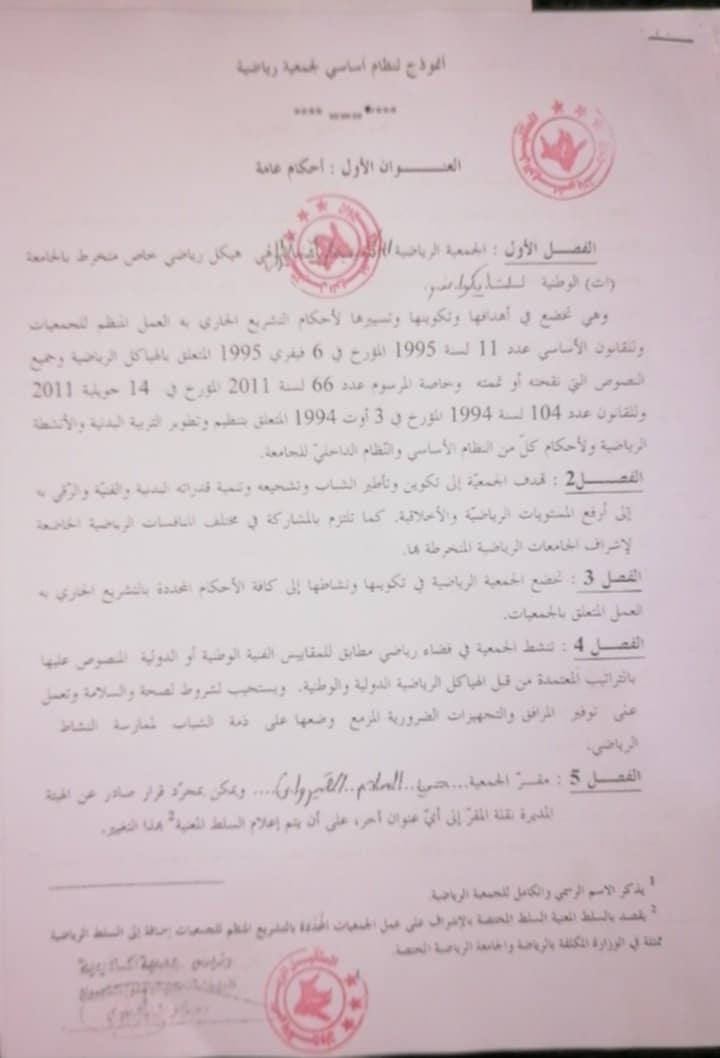 أنموذج لنظام أساسي لجمعية رياضية
**** ___ ****
العنـــــوان الأول : أحكام عامة
الفصـــل الأول : الجمعية الرياضية هي هيكل رياضي خاص منخرط بالجامعة
(ات) الوطنية
وهي تخضع في أهدافها وتكوينها وتسييرها لأحكام التشريع الجاري به العمل المنظم للجمعيات
وللقانون الأساسي عدد 11 لسنة 1995 المؤرخ في 6 فيفري 1995 المتعلق بالهياكل الرياضية وجميع
النصوص التي نقحته أو تممته وخاصة المرسوم عدد 66 لسنة 2011 المؤرخ في 14 جويلية 2011
وللقانون عدد 104 لسنة 1994 المؤرخ في 3 أوت 1994 المتعلق بتنظيم وتطوير التربية البدنية والأنشطة
الرياضية ولأحكام كلّ من النظام الأساسي والنّظام الداخليّ للجامعة.
الفصـــل2 : تهدف الجمعيّة إلى تكوين وتأطير الشباب وتشجيعه وتنمية قدراته البدنية والفنيّة والرّقي به
إلى أرفع المستويات الرياضيّة والأخلاقية. كما تلتزم بالمشاركة في مختلف المنافسات الرياضية الخاضعة
لإشراف الجامعات الرياضية المنخرطة بها.
الفصل 3 : تخضع الجمعية الرياضية في تكوينها ونشاطها إلى كافة الأحكام المحددة بالتشريع الجاري به
العمل المتعلق بالجمعيات.
الفصـــل 4 : تنشط الجمعية في فضاء رياضي مطابق للمقاييس الفنية الوطنية أو الدولية المنصوص عليها
بالتراتيب المعتمدة من قبل الهياكل الرياضية الدولية والوطنية. ويستجيب لشروط لصحة والسلامة وتعمل
على توفير المرافق والتجهيزات الضرورية المزمع وضعها على ذمة الشباب لممارسة النشاط
الرياضي.
الفصـــل 5 : مقـرّ الجمعية...حي...السلام...القيروان.... ويمكن بمجرّد قرار صادر عن الهيئة
المديرة نقلة المقرّ إلى أيّ عنوان آخر، على أن يتم إعلام السلط المعنية2 بهذا التغيير.
1 يذكر الاسم الرسمي والكامل للجمعية الرياضية.
2 يقصد بالسلط المعنية السلط المختصة بالإشراف على عمل الجمعيات المحُدّدة بالتشريع المنظم للجمعيات إضافة إلى السلط الرياضية
ممثلة في الوزارة المكلفة بالرياضة والجامعة الرياضية المختصة.